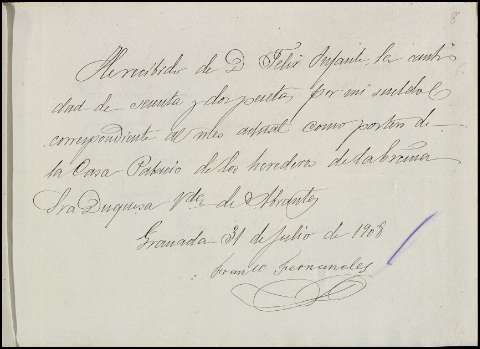 8
He recibido de D Felix Infante, la canti
dad de sesenta y dos pesetas por mi sueldo
correspondiente al mes actual como portero de
la Casa Palacio de los herederos de la Excma
Sra Duquesa Vda de Abrantes
Granada 31 de Julio de 1908
Franco Fernandes